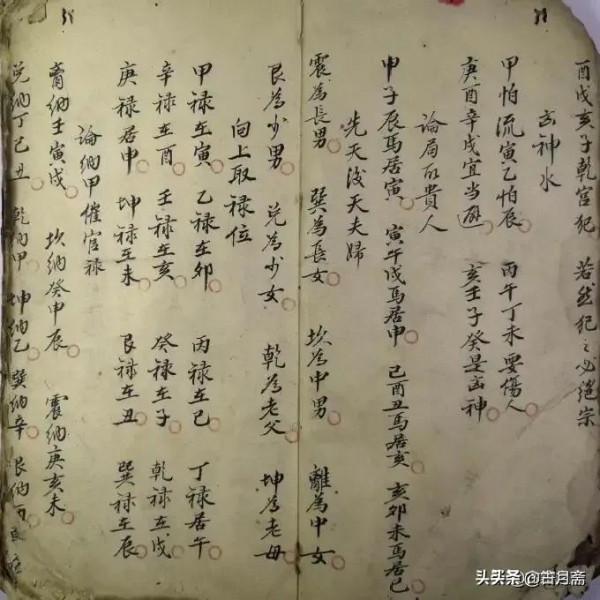 酉戌亥子乾宮犯 若然犯之必绝宗
玄神水
甲怕流寅乙怕辰 丙午丁未要傷人
庚酉辛戌宜当避 亥壬子癸是玄神
論局的貴人
甲子辰馬居寅 寅午戌馬居申 己酉丑馬居亥 亥卯未馬居巳
先天後天夫婦
震為長男 巽為長女 坎為中男 離為中女
艮為少男 兑為少女 乾為老父 坤為老母
向上取禄位
甲禄在寅 乙禄在卯 丙禄在巳 丁禄居午
辛禄在酉 壬禄在亥 癸禄在子 乾禄在戌
庚禄居申 坤禄在未 艮禄在丑 巽禄在辰
論納甲催官禄
納壬寅戌 坎納癸申辰 震納庚亥未
兑納丁己丑 乾納甲 坤納乙 巽納辛 艮納丙
头条 @芸月斋